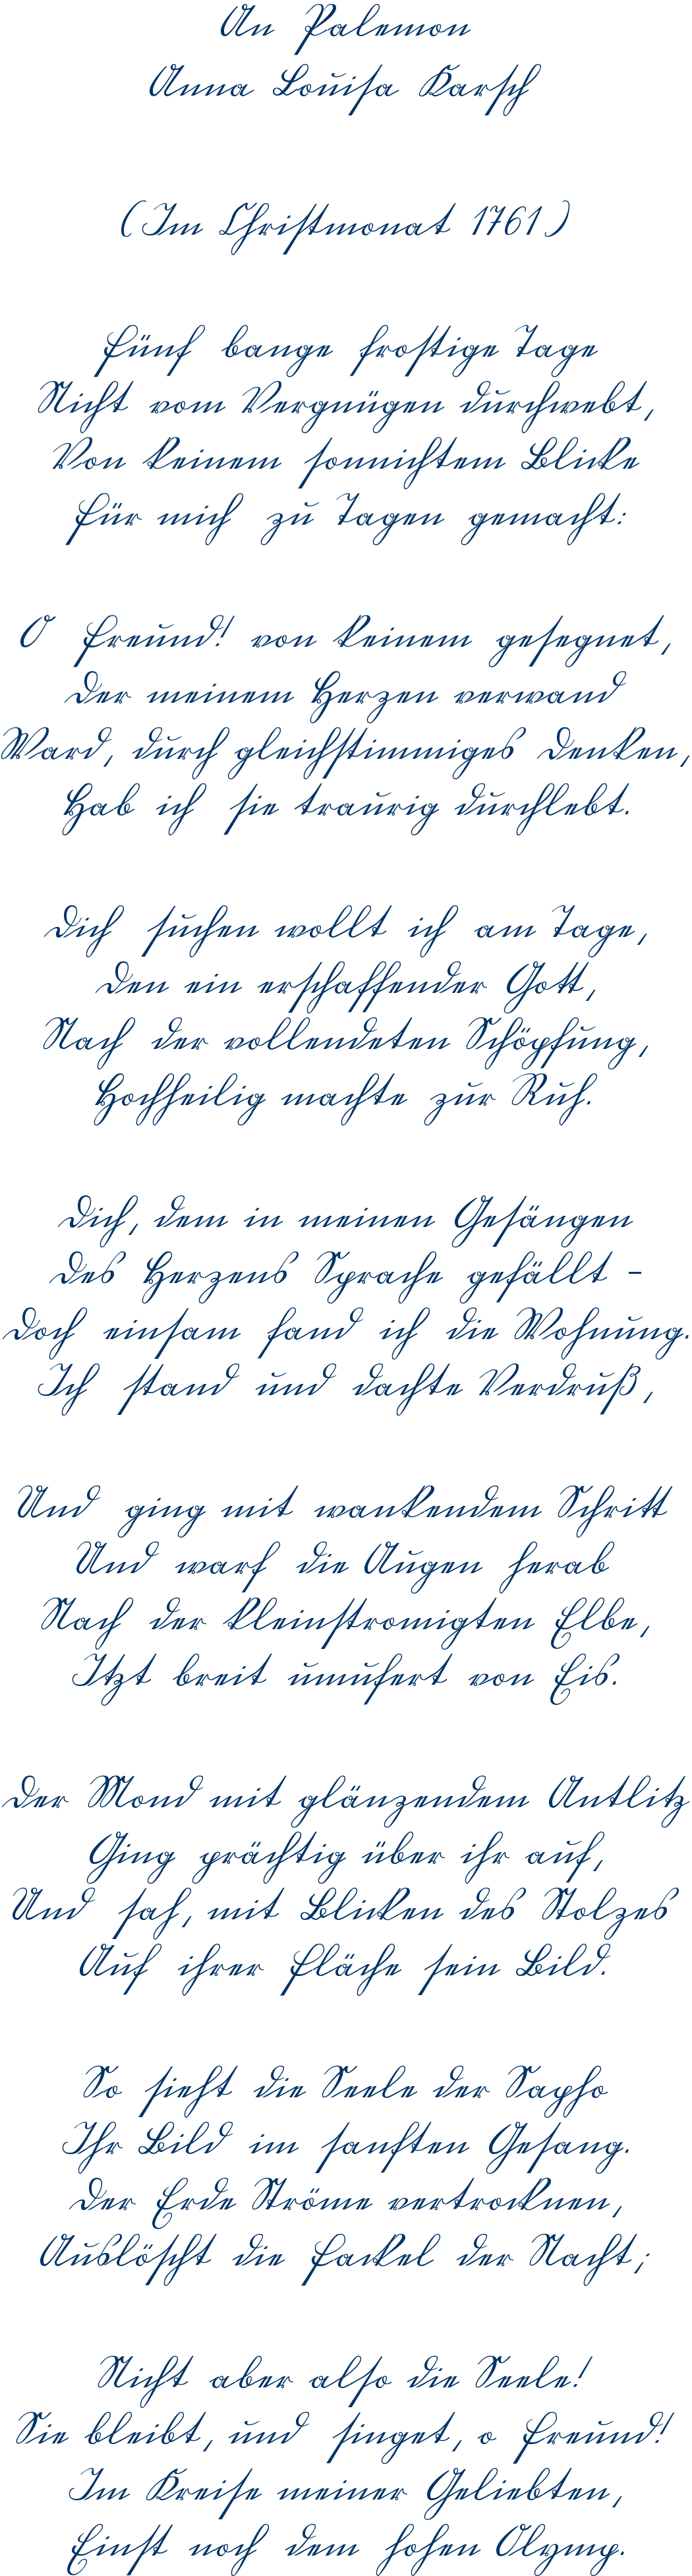 An Palemon
Anna Louisa Karsch
(Im Christmonat 1761)
Fünf bange frostige Tage
Nicht vom Vergnügen durchwebt,
Von keinem sonnichtem Blicke
Für mich zu Tagen gemacht:
O Freund! von keinem gesegnet,
Der meinem Herzen verwand
Ward, durch gleichstimmiges Denken,
Hab ich sie traurig durchlebt.
Dich suchen wollt ich am Tage,
Den ein erschaffender Gott,
Nach der vollendeten Schöpfung,
Hochheilig machte zur Ruh.
Dich, dem in meinen Gesängen
Des Herzens Sprache gefällt –
Doch einsam fand ich die Wohnung.
Ich stand und dachte Verdruß,
Und ging mit wankendem Schritt
Und warf die Augen herab
Nach der kleinstromigten Elbe,
Itzt breit umufert von Eis.
Der Mond mit glänzendem Antlitz
Ging prächtig über ihr auf,
Und sah, mit Blicken des Stolzes
Auf ihrer Fläche sein Bild.
So sieht die Seele der Sapho
Ihr Bild im sanften Gesang.
Der Erde Ströme vertrocknen,
Auslöscht die Fackel der Nacht;
Nicht aber also die Seele!
Sie bleibt, und singet, o Freund!
Im Kreise meiner Geliebten,
Einst noch dem hohen Olymp.